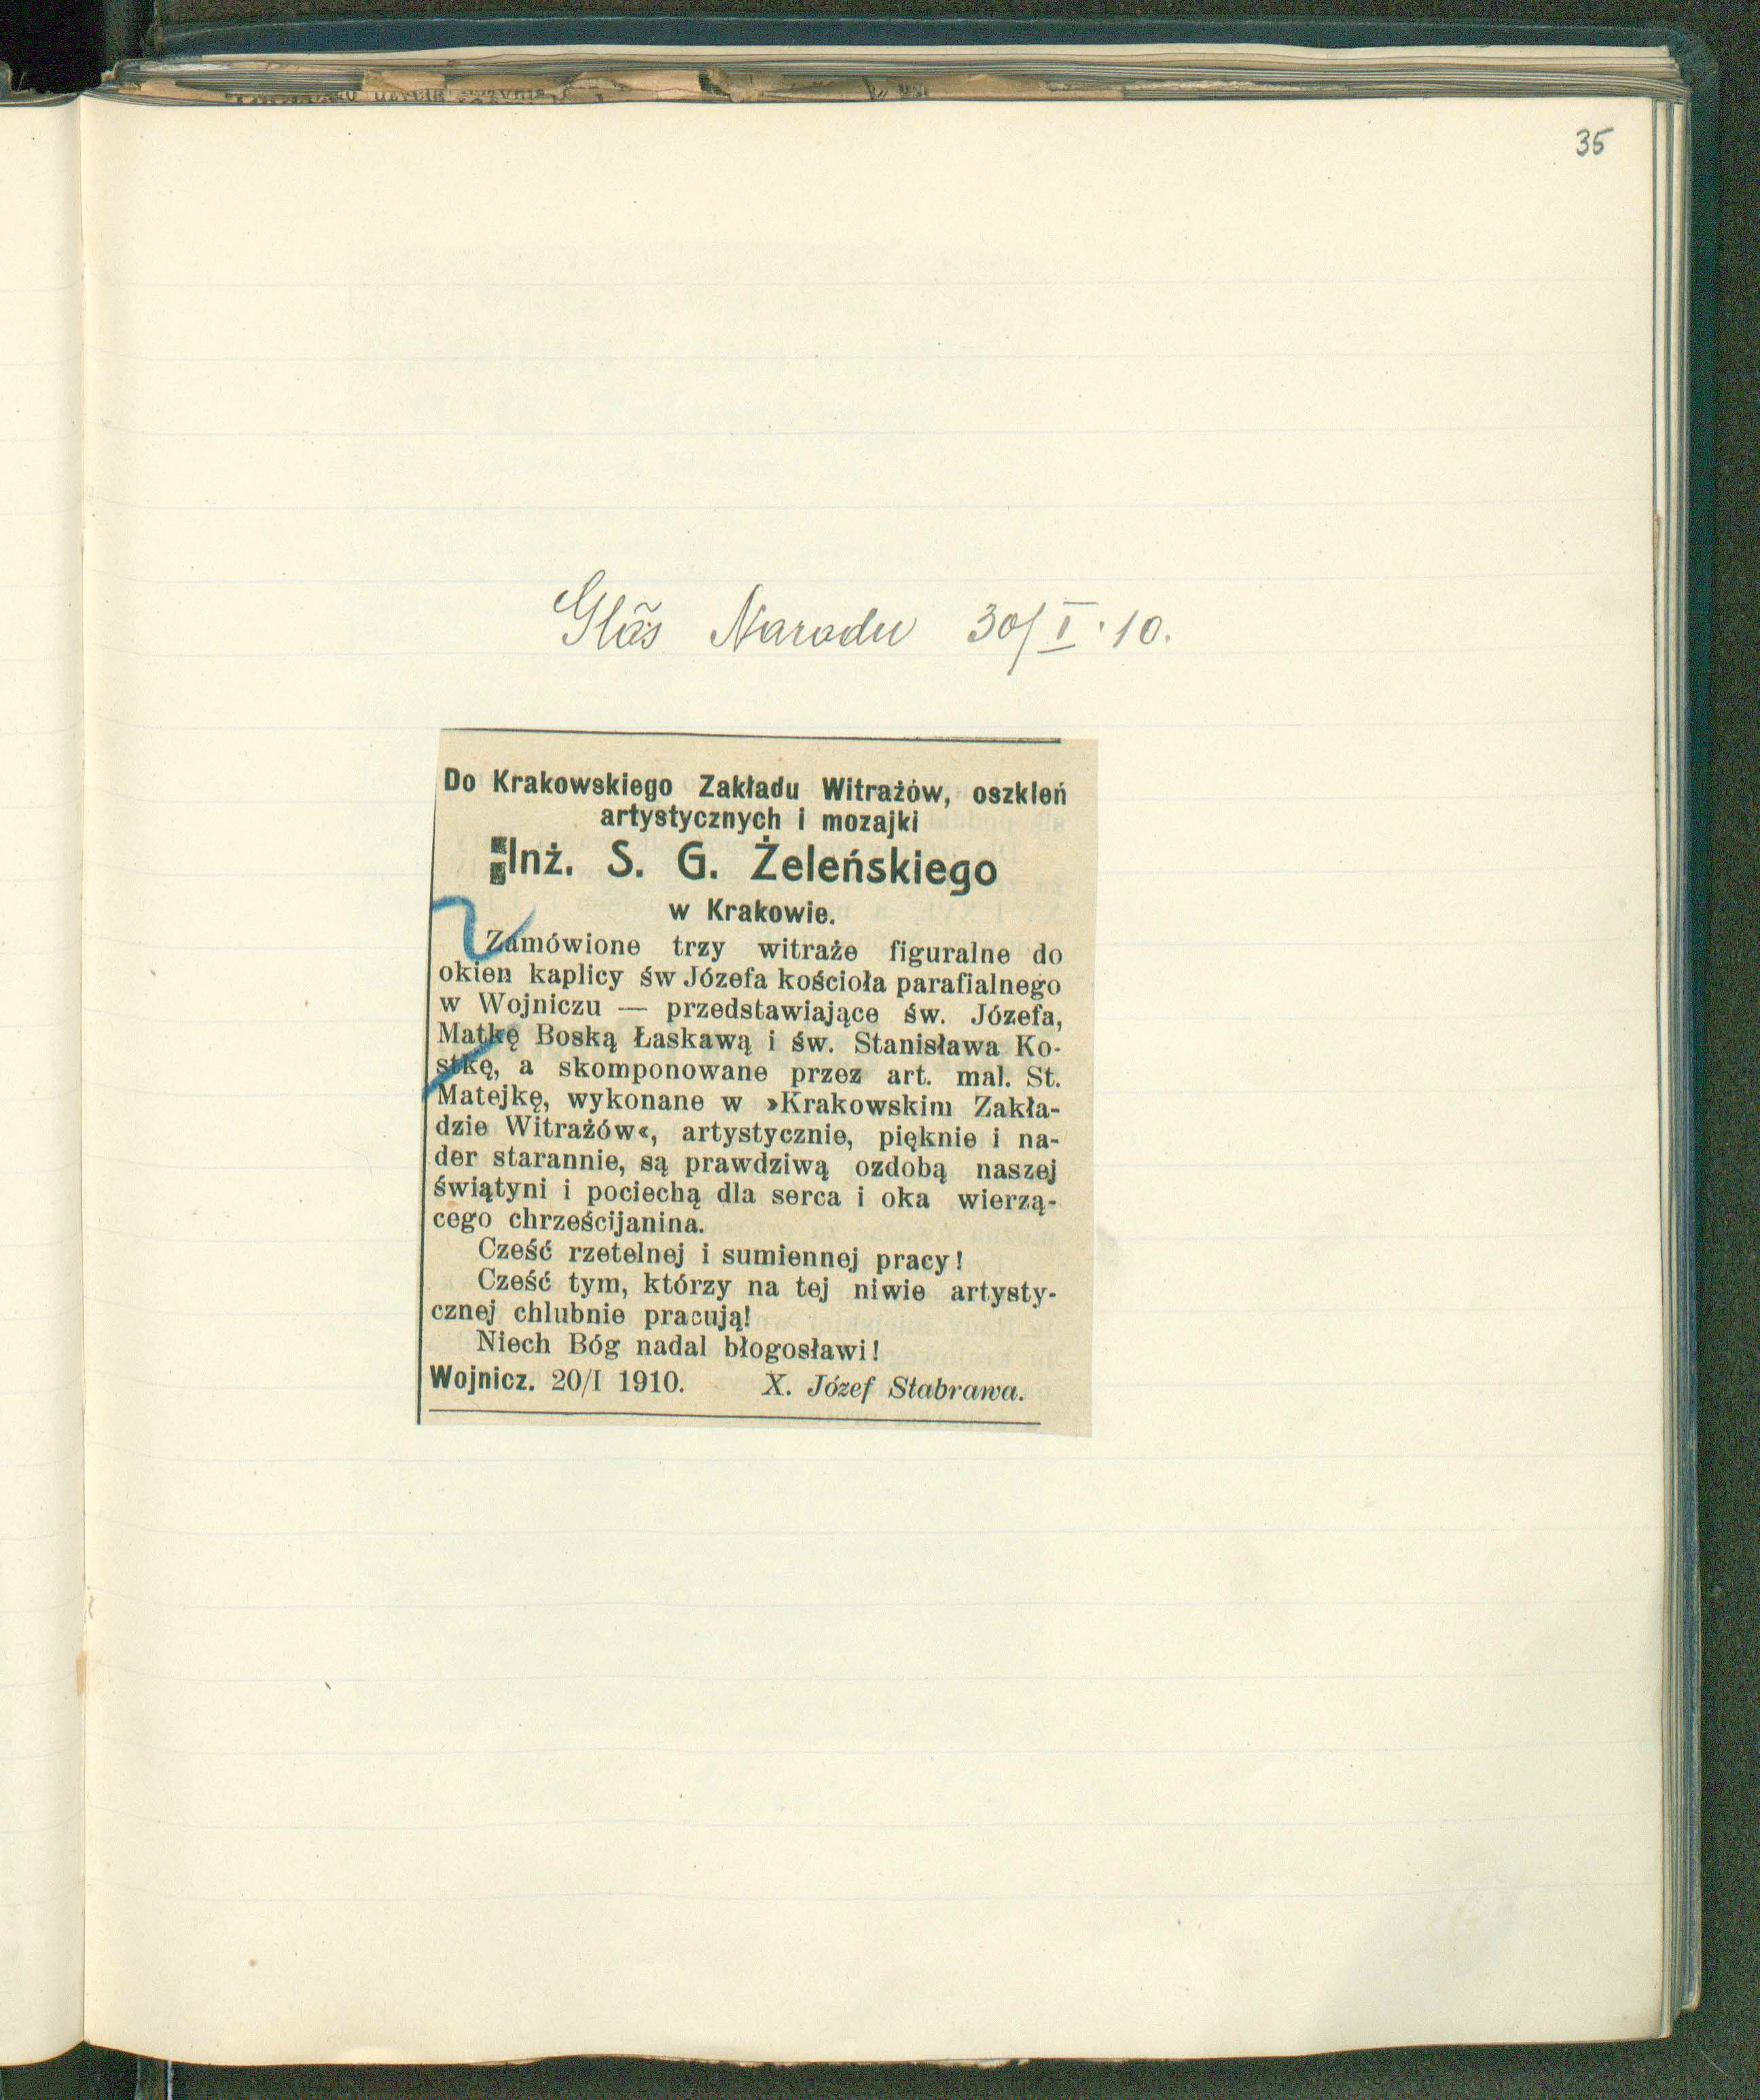 35
Głos Narodu 30/I·10.
Do Krakowskiego Zakładu Witrażów, oszkleń
artystycznych i mozajki
Inż. S. G. Żeleńskiego
w Krakowie.
Zamówione trzy witraże figuralne do
okien kaplicy św Józefa kościoła parafialnego
w Wojniczu — przedstawiające św. Józefa,
Matkę Boską Łaskawą i św. Stanisława Ko-
stkę, a skomponowane przez art. mal. St.
Matejkę, wykonane w »Krakowskim Zakła-
dzie Witrażów«, artystycznie, pięknie i na-
der starannie, są prawdziwą ozdobą naszej
świątyni i pociechą dla serca i oka wierzą-
cego chrześcijanina.
Cześć rzetelnej i sumiennej pracy!
Cześć tym, którzy na tej niwie artysty-
cznej chlubnie pracują!
Niech Bóg nadal błogosławi!
Wojnicz. 20/I 1910. X. Józef Stabrawa.